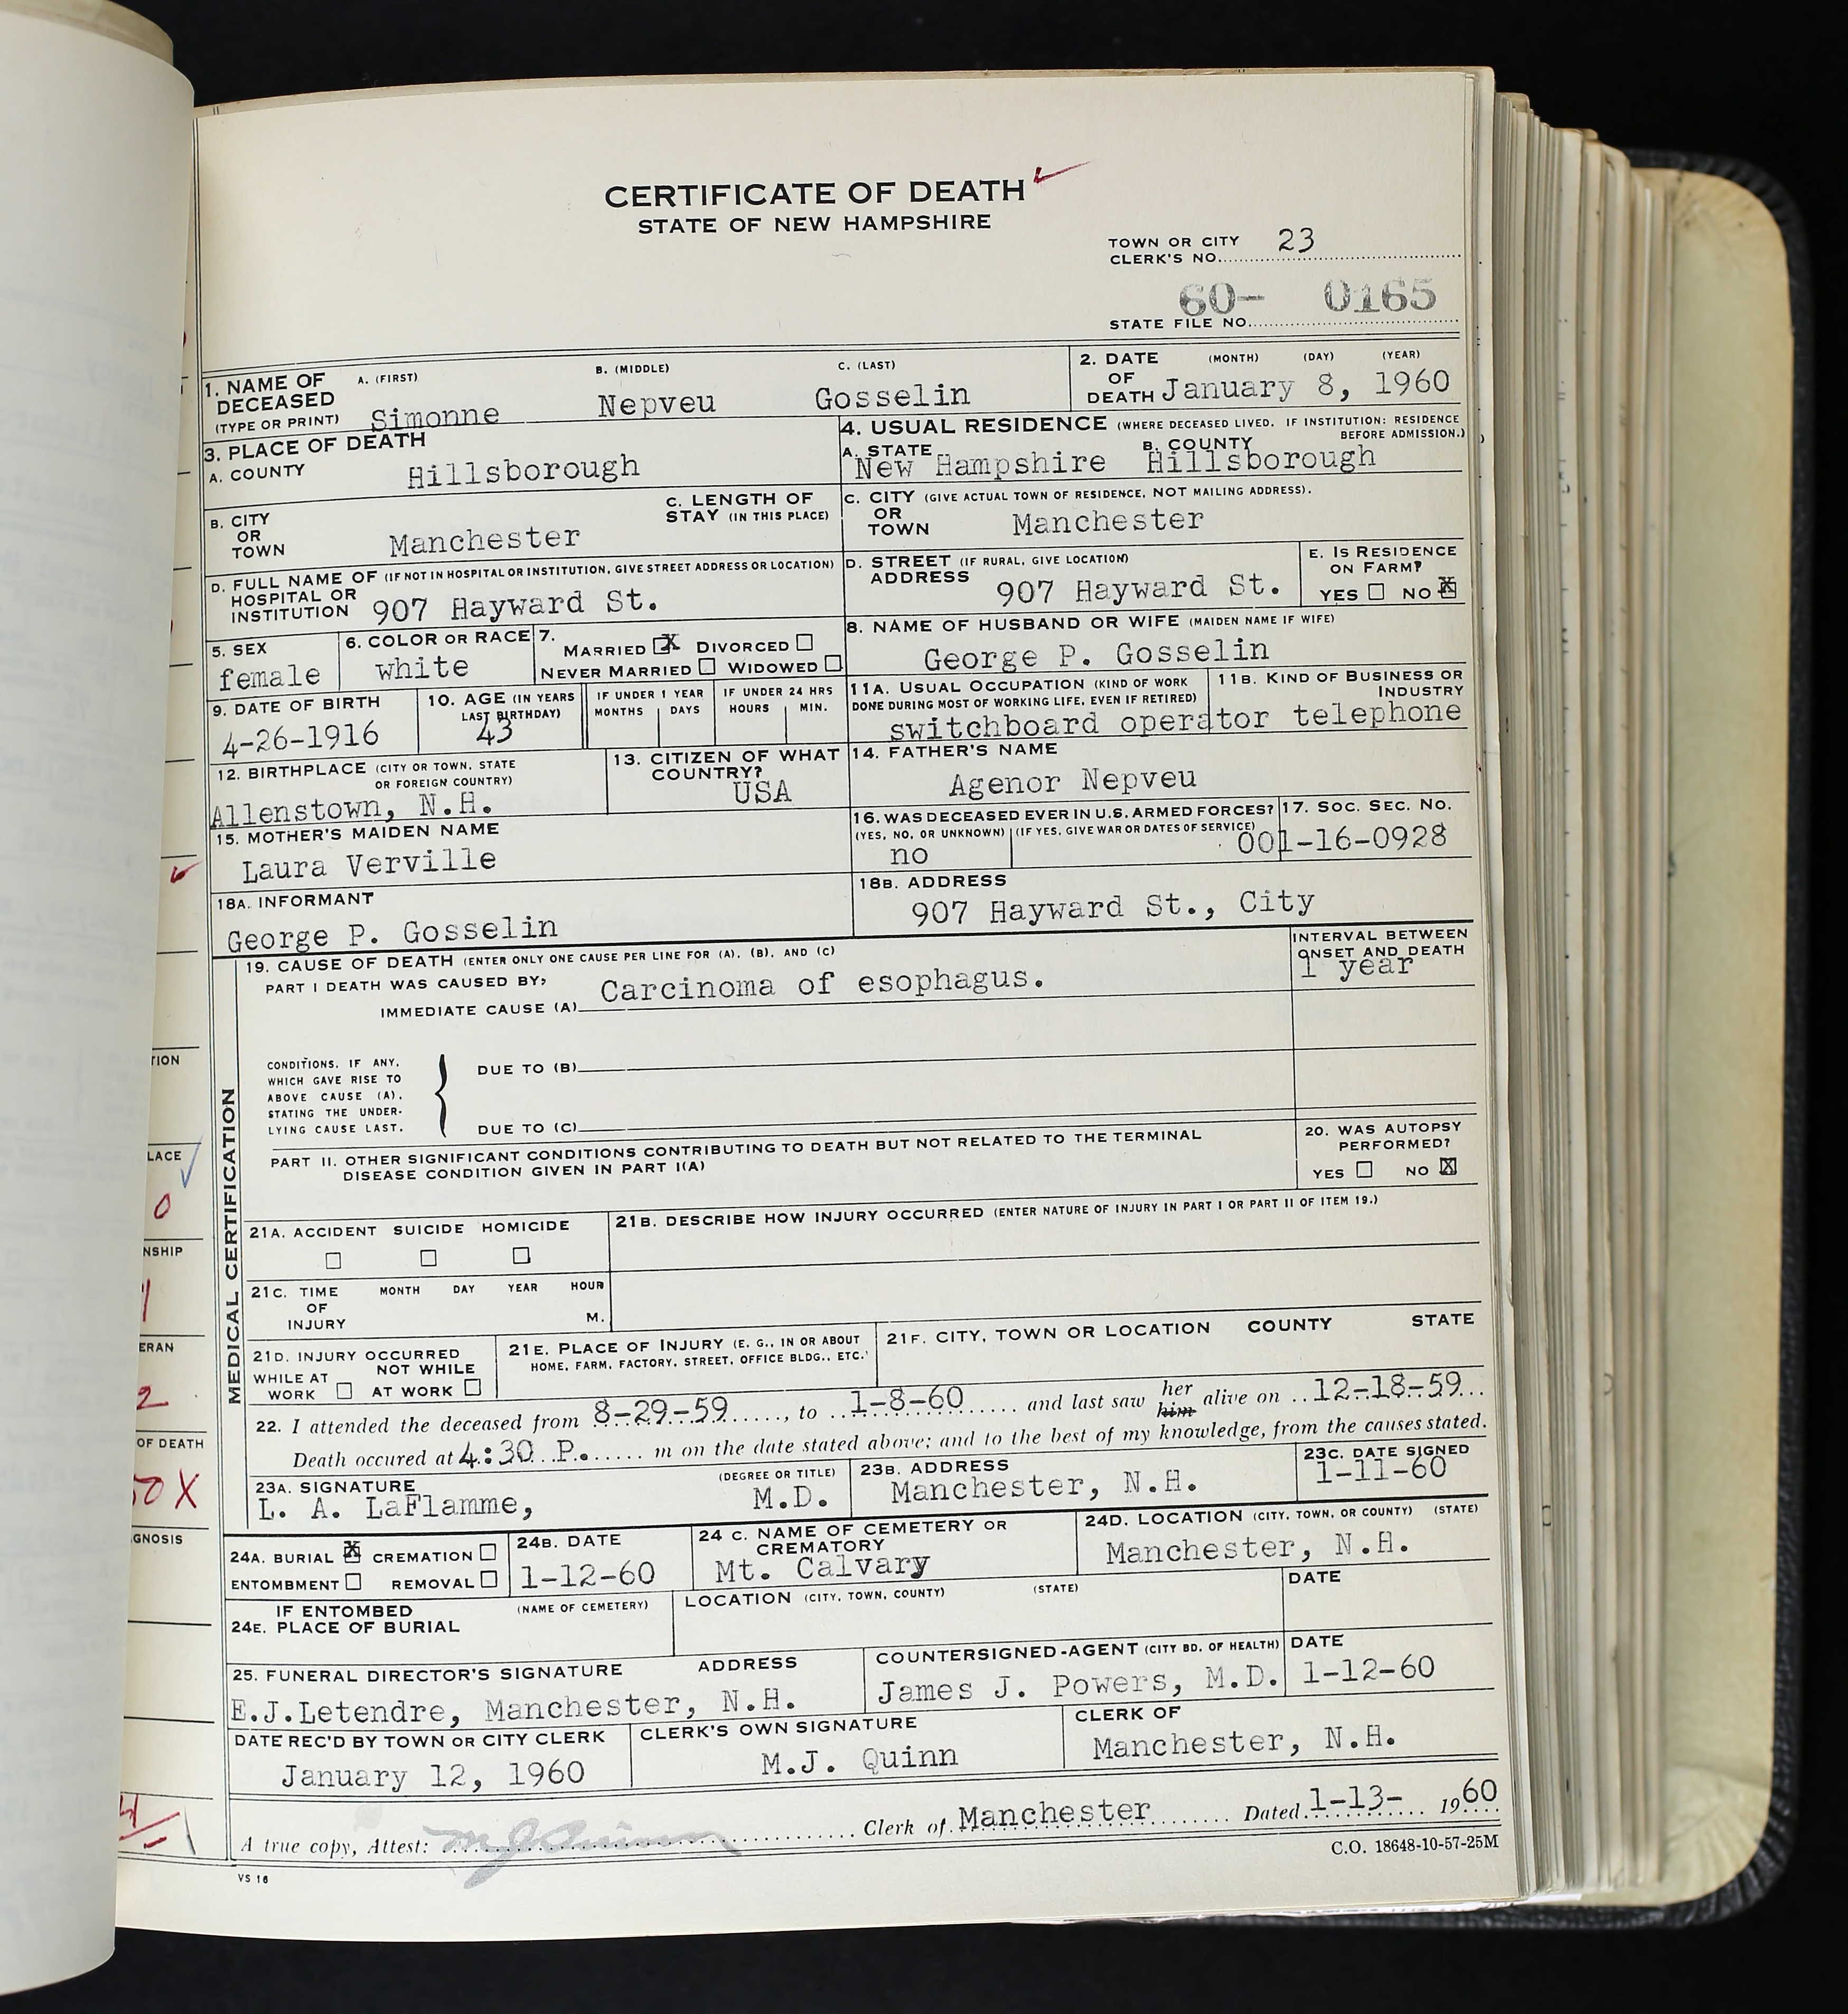 CERTIFICATE OF DEATH
STATE OF NEW HAMPSHIRE
TOWN OR CITY CLERK'S NO. 23
60- 0165
STATE FILE NO.
1. NAME OF DECEASED (TYPE OR PRINT)
A. (FIRST) B. (MIDDLE) C. (LAST)
Simonne Nepveu Gosselin
2. DATE OF DEATH (MONTH) (DAY) (YEAR)
January 8, 1960
3. PLACE OF DEATH
A. COUNTY Hillsborough
4. USUAL RESIDENCE (WHERE DECEASED LIVED. IF INSTITUTION: RESIDENCE BEFORE ADMISSION.)
A. STATE B. COUNTY
New Hampshire Hillsborough
B. CITY OR TOWN Manchester
C. LENGTH OF STAY (IN THIS PLACE)
C. CITY (GIVE ACTUAL TOWN OF RESIDENCE, NOT MAILING ADDRESS).
OR TOWN Manchester
D. FULL NAME OF (IF NOT IN HOSPITAL OR INSTITUTION, GIVE STREET ADDRESS OR LOCATION)
HOSPITAL OR INSTITUTION 907 Hayward St.
D. STREET (IF RURAL, GIVE LOCATION)
ADDRESS 907 Hayward St.
E. IS RESIDENCE ON FARM?
YES NO X
5. SEX
female
6. COLOR OR RACE
white
7. MARRIED X DIVORCED
NEVER MARRIED WIDOWED
8. NAME OF HUSBAND OR WIFE (MAIDEN NAME IF WIFE)
George P. Gosselin
9. DATE OF BIRTH
4-26-1916
10. AGE (IN YEARS LAST BIRTHDAY)
43
IF UNDER 1 YEAR
MONTHS DAYS
IF UNDER 24 HRS
HOURS MIN.
11A. USUAL OCCUPATION (KIND OF WORK DONE DURING MOST OF WORKING LIFE, EVEN IF RETIRED)
11B. KIND OF BUSINESS OR INDUSTRY
switchboard operator telephone
12. BIRTHPLACE (CITY OR TOWN, STATE OR FOREIGN COUNTRY)
Allenstown, N.H.
13. CITIZEN OF WHAT COUNTRY?
USA
14. FATHER'S NAME
Agenor Nepveu
15. MOTHER'S MAIDEN NAME
Laura Verville
16. WAS DECEASED EVER IN U.S. ARMED FORCES?
(YES, NO, OR UNKNOWN) (IF YES, GIVE WAR OR DATES OF SERVICE)
no
17. SOC. SEC. NO.
001-16-0928
18A. INFORMANT
George P. Gosselin
18B. ADDRESS
907 Hayward St., City
MEDICAL CERTIFICATION
19. CAUSE OF DEATH (ENTER ONLY ONE CAUSE PER LINE FOR (A), (B), AND (C)
PART I DEATH WAS CAUSED BY:
IMMEDIATE CAUSE (A) Carcinoma of esophagus.
INTERVAL BETWEEN ONSET AND DEATH
1 year
CONDITIONS, IF ANY,
WHICH GAVE RISE TO
ABOVE CAUSE (A),
STATING THE UNDER-
LYING CAUSE LAST.
DUE TO (B)
DUE TO (C)
PART II. OTHER SIGNIFICANT CONDITIONS CONTRIBUTING TO DEATH BUT NOT RELATED TO THE TERMINAL
DISEASE CONDITION GIVEN IN PART I(A)
20. WAS AUTOPSY PERFORMED?
YES NO X
21A. ACCIDENT SUICIDE HOMICIDE
21B. DESCRIBE HOW INJURY OCCURRED (ENTER NATURE OF INJURY IN PART I OR PART II OF ITEM 19.)
21C. TIME OF INJURY MONTH DAY YEAR HOUR
M.
21D. INJURY OCCURRED
WHILE AT WORK NOT WHILE AT WORK
21E. PLACE OF INJURY (E. G., IN OR ABOUT
HOME, FARM, FACTORY, STREET, OFFICE BLDG., ETC.)
21F. CITY, TOWN OR LOCATION COUNTY STATE
22. I attended the deceased from 8-29-59, to 1-8-60 and last saw her him alive on 12-18-59
Death occured at 4:30 P. m on the date stated above; and to the best of my knowledge, from the causes stated.
23A. SIGNATURE (DEGREE OR TITLE)
L. A. LaFlamme, M.D.
23B. ADDRESS
Manchester, N.H.
23C. DATE SIGNED
1-11-60
24A. BURIAL X CREMATION
ENTOMBMENT REMOVAL
24B. DATE
1-12-60
24 C. NAME OF CEMETERY OR CREMATORY
Mt. Calvary
24D. LOCATION (CITY, TOWN, OR COUNTY) (STATE)
Manchester, N.H.
IF ENTOMBED (NAME OF CEMETERY)
24E. PLACE OF BURIAL
LOCATION (CITY, TOWN, COUNTY) (STATE)
DATE
25. FUNERAL DIRECTOR'S SIGNATURE ADDRESS
E.J.Letendre, Manchester, N.H.
COUNTERSIGNED-AGENT (CITY BD. OF HEALTH)
James J. Powers, M.D.
DATE
1-12-60
DATE REC'D BY TOWN OR CITY CLERK
January 12, 1960
CLERK'S OWN SIGNATURE
M.J. Quinn
CLERK OF
Manchester, N.H.
A true copy, Attest: M J Quinn Clerk of Manchester Dated 1-13- 1960
VS 16
C.O. 18648-10-57-25M
TION
LACE
0
NSHIP
1
ERAN
2
OF DEATH
50 X
GNOSIS